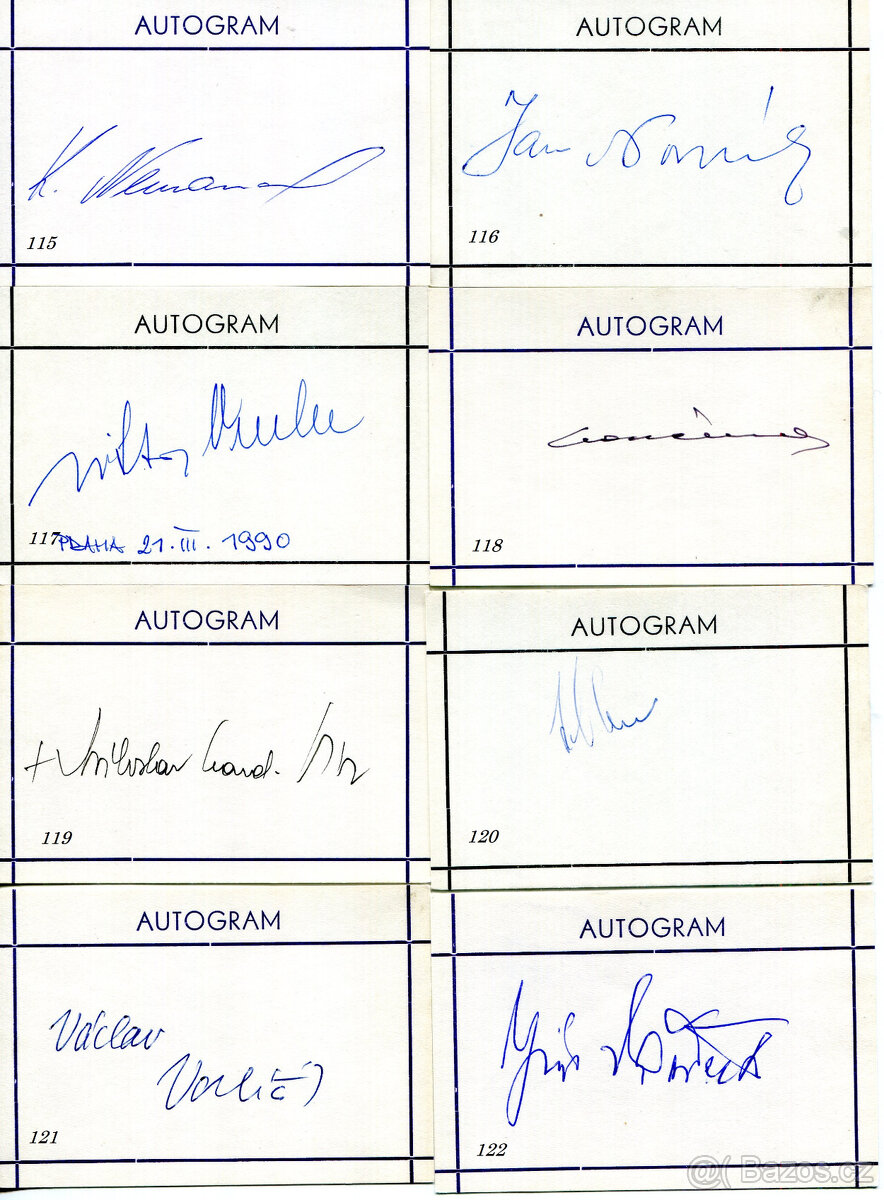 AUTOGRAM
K.
115
AUTOGRAM
Jan Novák
116
AUTOGRAM
Viktor
117 PRAHA 21. III. 1990
AUTOGRAM
118
AUTOGRAM
+ Miloslav card. Vlk
119
AUTOGRAM
120
AUTOGRAM
Václav
Vorlíč
121
AUTOGRAM
Jiří
122
@( Bazos.cz